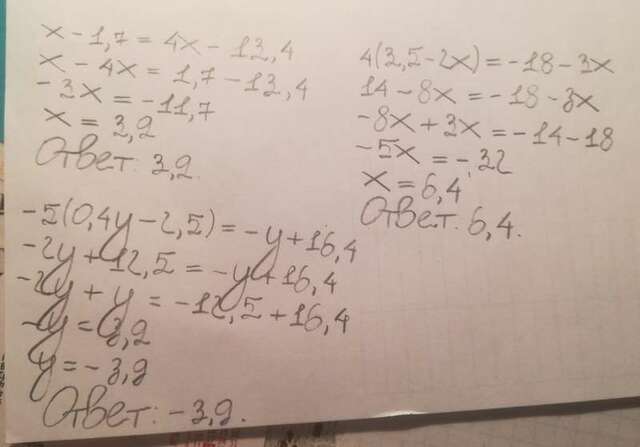 x - 1,7 = 4x - 13,4
x - 4x = 1,7 - 13,4
- 3x = - 11,7
x = 3,9
Ответ: 3,9.
4(3,5 - 2x) = - 18 - 3x
14 - 8x = - 18 - 3x
- 8x + 3x = - 14 - 18
- 5x = - 32
x = 6,4
Ответ: 6,4.
- 5(0,4y - 2,5) = - y + 16,4
- 2y + 12,5 = - y + 16,4
- 2y + y = - 12,5 + 16,4
- y = 3,9
y = - 3,9
Ответ: - 3,9.